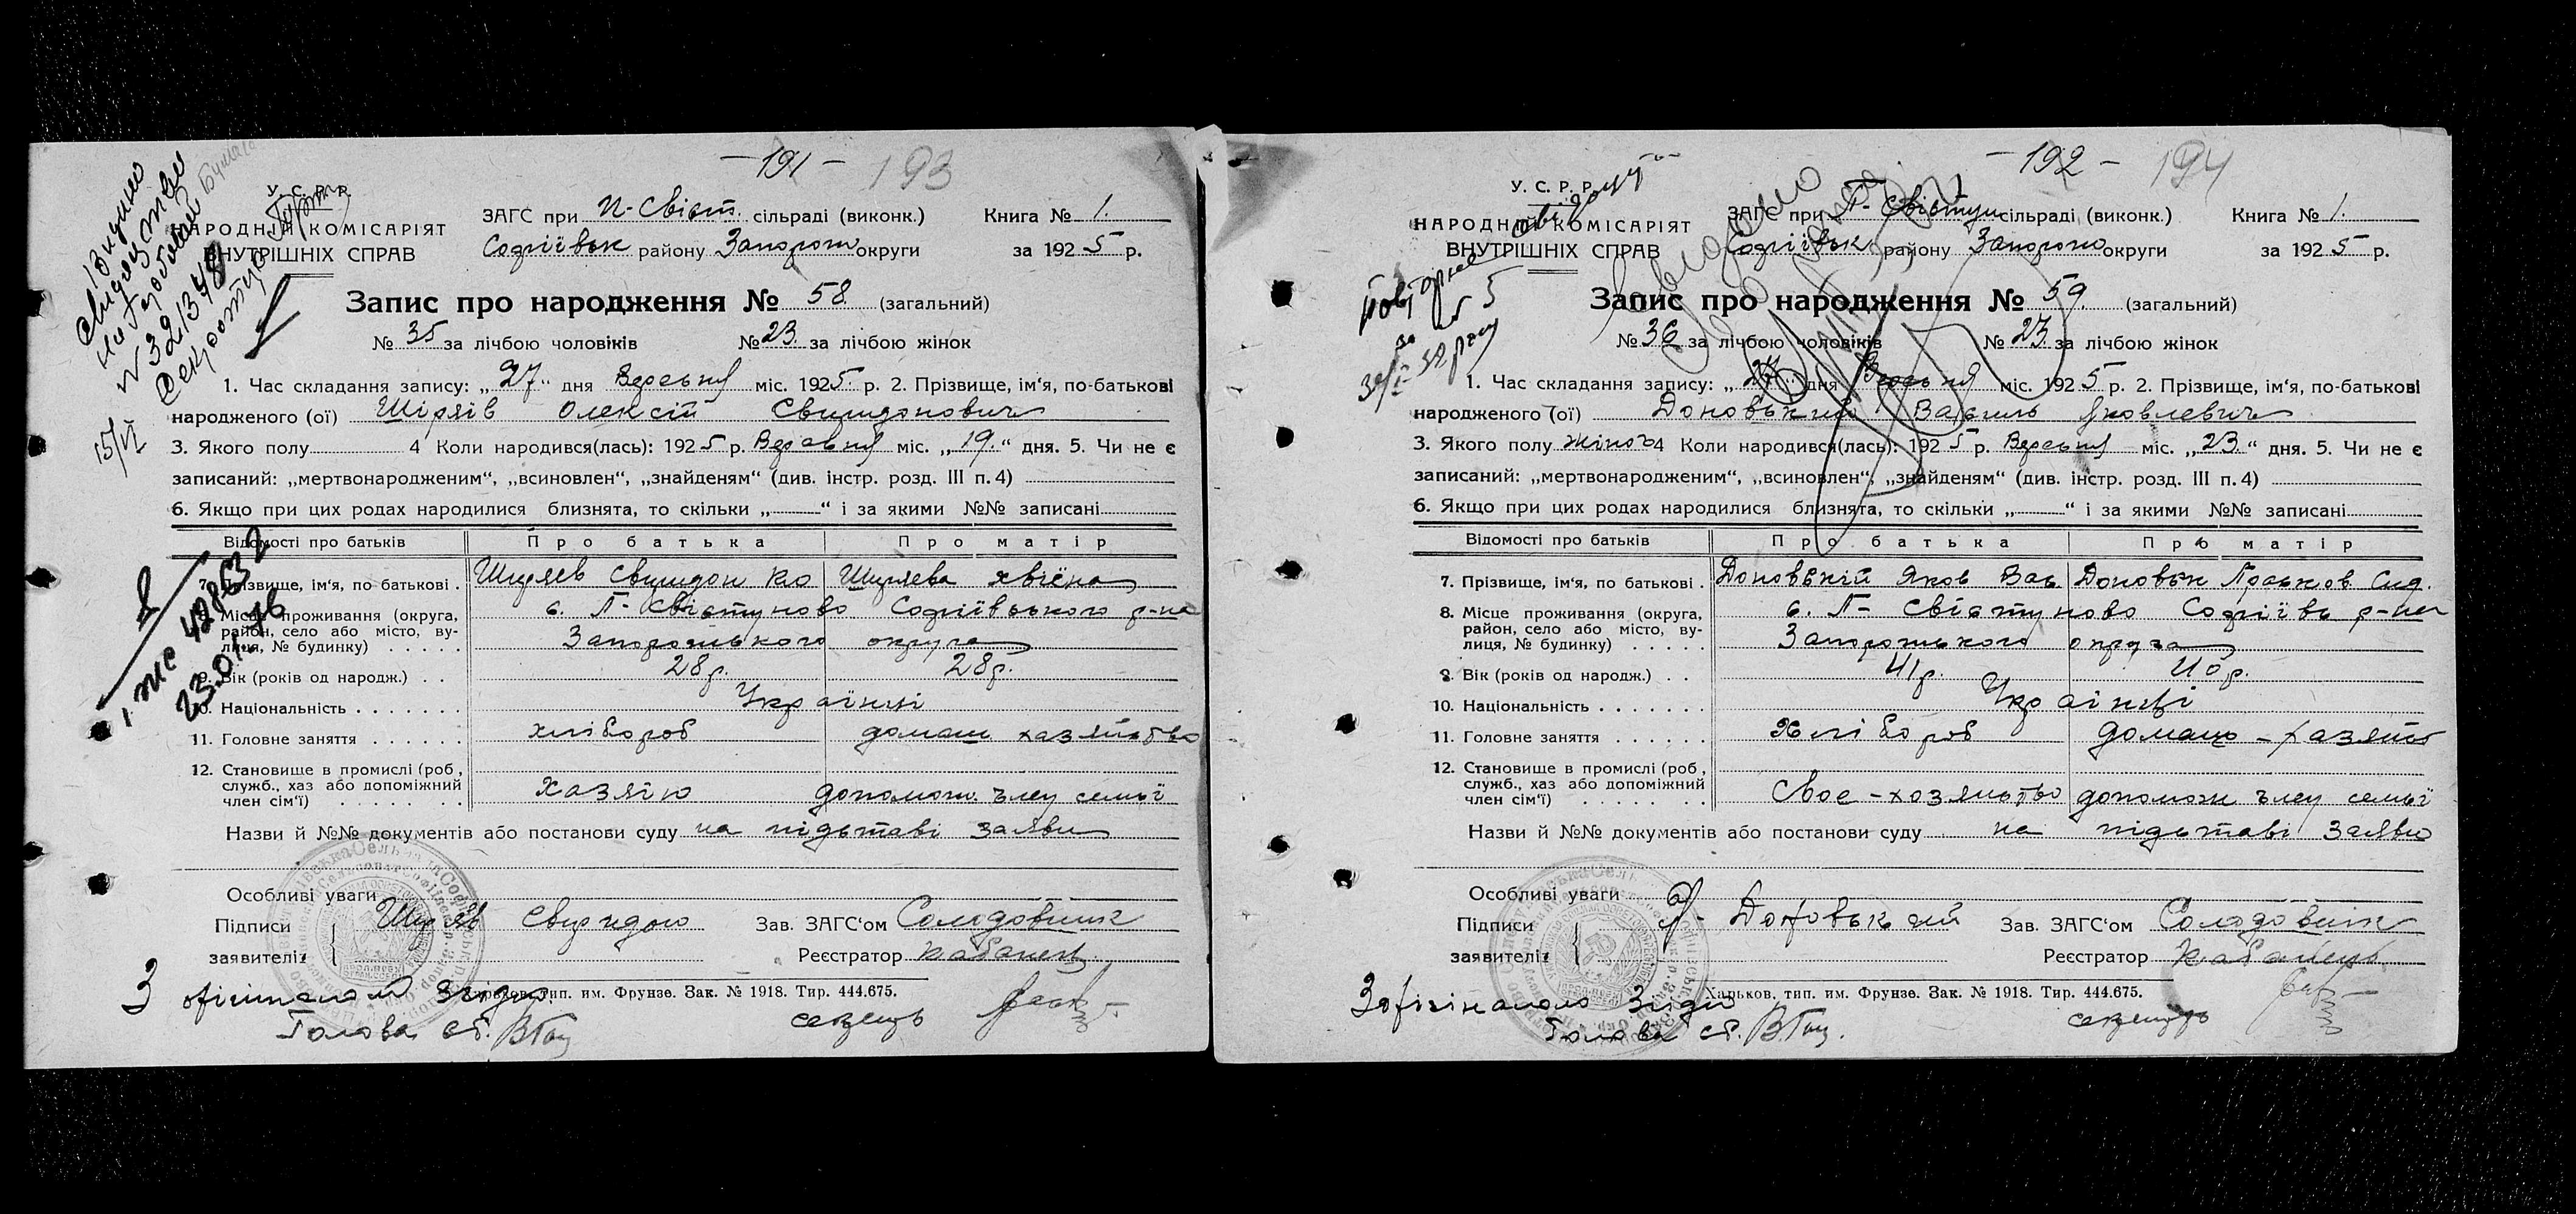 — 191 — 193
У. С. Р. Р.
НАРОДНІЙ КОМІСАРІЯТ
ВНУТРІШНІХ СПРАВ
ЗАГС при П-Свіст. сільраді (виконк.) Книга № 1.
Софіївськ району Запорож округи за 1925 р.
Запис про народження № 58. (загальний)
№ 35 за лічбою чоловіків № 23. за лічбою жінок
1. Час складання запису: „27“ дня Вересня міс. 1925. р. 2. Прізвище, ім‘я, по-батькові
народженого (ої) Шіряїв Олексій Свиридонович
3. Якого полу 4 Коли народився(лась): 1925 р. Вересня міс. „19.“ дня. 5. Чи не є
записаний: „мертвонародженим“, „всиновлен“, „знайденям“ (див. інстр. розд. III п. 4)
6. Якщо при цих родах народилися близнята, то скільки „ “ і за якими №№ записані
Відомості про батьків Про батька Про матір
7. Прізвище, ім‘я, по батькові . Ширяев Свиридон Ширяева
8. Місце проживання (округа, район, село або місто, вулиця, № будинку) с. П-Свістуново Софіївського р-на
Запорожського округа
9. Вік (років од народж.) . . 28 р. 28 р.
10. Національність . . . . . . . Українці
11. Головне заняття . . . . . . хлібороб домаш. хазяйство
12. Становище в промислі (роб, служб., хаз або допоміжний член сім‘ї) Хазяїн допомож. член семьї
Назви й №№ документів або постанови суду на підставі заяви
Особливі уваги
Підписи Ширяїв Свиридон Зав. ЗАГС‘ом Солодовник
заявителіз Реєстратор Кабанець
Харьков, тип. им. Фрунзе. Зак. № 1918. Тир. 444.675.
З офігіналом згідно
Голова с.р. секрець
Видано
свидетство
15/VI
23.01.76
— 192 — 194
У. С. Р. Р.
НАРОДНІЙ КОМІСАРІЯТ
ВНУТРІШНІХ СПРАВ
ЗАГС при П-Свістун сільраді (виконк.) Книга № 1.
Софіївськ району Запорож округи за 1925 р.
Запис про народження № 59. (загальний)
№ 36 за лічбою чоловіків № 23. за лічбою жінок
1. Час складання запису: „27“ дня Вересня міс. 1925 р. 2. Прізвище, ім‘я, по-батькові
народженого (ої) Доновський Василь Яковлевич
3. Якого полу жіноч 4 Коли народився(лась): 1925 р. Вересня міс. „23.“ дня. 5. Чи не є
записаний: „мертвонародженим“, „всиновлен“, „знайденям“ (див. інстр. розд. III п. 4)
6. Якщо при цих родах народилися близнята, то скільки „ “ і за якими №№ записані
Відомості про батьків Про батька Про матір
7. Прізвище, ім‘я, по батькові . Доновській Яков Вас. Доновськ Прасков. Сид.
8. Місце проживання (округа, район, село або місто, вулиця, № будинку) с. П-Свістуново Софіївсь р-на
Запорожського округа
9. Вік (років од народж.) . . 41 р. 40 р.
10. Національність . . . . . . . Українці
11. Головне заняття . . . . . . Хлібороб домаш-хазяйс
12. Становище в промислі (роб, служб., хаз або допоміжний член сім‘ї) Своє-хозяйство допомож член семьї
Назви й №№ документів або постанови суду на підставі заяви
Особливі уваги
Підписи Доновський Зав. ЗАГС‘ом Солодовник
заявителіз Реєстратор Кабанець
Харьков, тип. им. Фрунзе. Зак. № 1918. Тир. 444.675.
З офігіналом згідно
Голова с.р. секрець